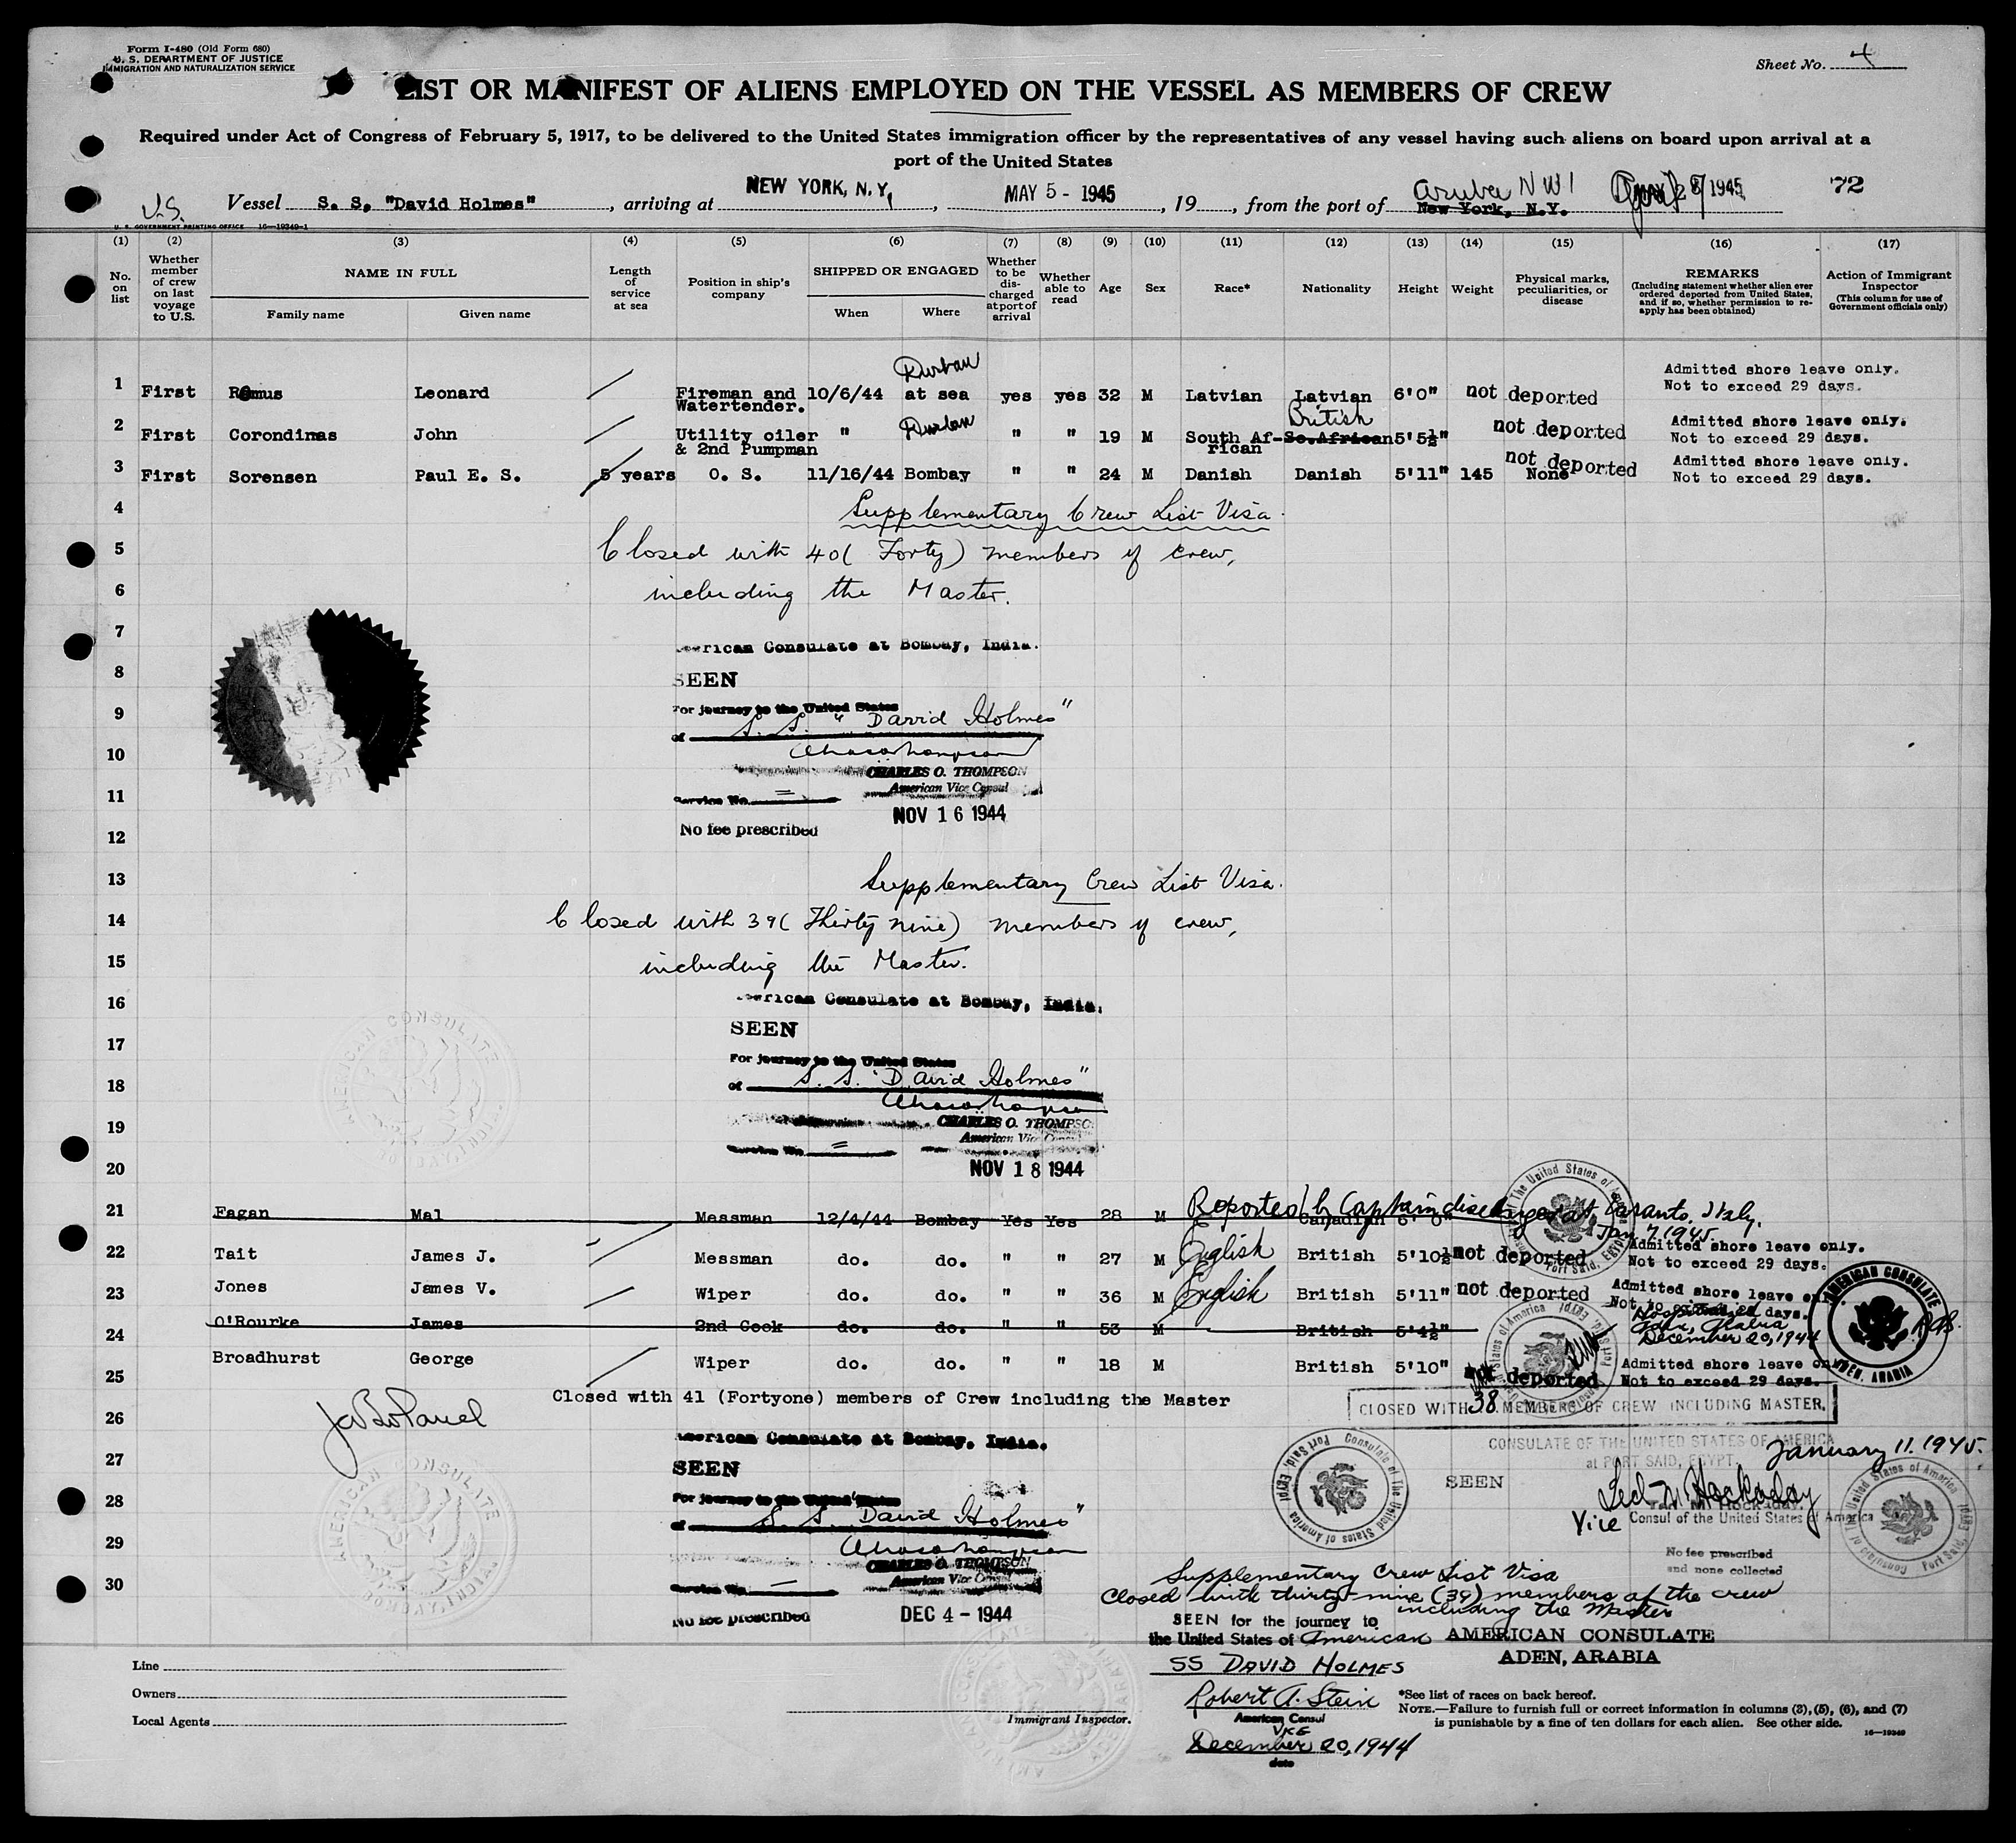 Form I-480 (Old Form 680)
U. S. DEPARTMENT OF JUSTICE
IMMIGRATION AND NATURALIZATION SERVICE
Sheet No. 4
LIST OR MANIFEST OF ALIENS EMPLOYED ON THE VESSEL AS MEMBERS OF CREW
Required under Act of Congress of February 5, 1917, to be delivered to the United States immigration officer by the representatives of any vessel having such aliens on board upon arrival at a
port of the United States
U.S. Vessel S. S. "David Holmes", arriving at NEW YORK, N.Y., MAY 5 - 1945, 19, from the port of Aruba NWI New York, N.Y. 1945 72
U. S. GOVERNMENT PRINTING OFFICE 16-19249-1
(1) (2) (3) (4) (5) (6) (7) (8) (9) (10) (11) (12) (13) (14) (15) (16) (17)
No. on list
Whether member of crew on last voyage to U.S.
NAME IN FULL
Family name Given name
Length of service at sea
Position in ship's company
SHIPPED OR ENGAGED
When Where
Whether to be discharged at port of arrival
Whether able to read
Age Sex Race* Nationality Height Weight
Physical marks, peculiarities, or disease
REMARKS
(Including statement whether alien ever ordered deported from United States, and if so, whether permission to reapply has been obtained)
Action of Immigrant Inspector
(This column for use of Government officials only)
Durban Admitted shore leave only.
1 First Remus Leonard Fireman and 10/6/44 at sea yes yes 32 M Latvian Latvian 6'0" not deported Not to exceed 29 days.
Watertender.
British
2 First Corondimas John Utility oiler " Durban " " 19 M South Af- So.African 5'5½" not deported Admitted shore leave only.
& 2nd Pumpman rican Not to exceed 29 days.
3 First Sorensen Paul E. S. 5 years O. S. 11/16/44 Bombay " " 24 M Danish Danish 5'11" 145 None not deported Admitted shore leave only.
Not to exceed 29 days.
4 Supplementary Crew List Visa.
5 Closed with 40 (Forty) members of crew,
6 including the Master.
7 American Consulate at Bombay, India.
8 SEEN
9 For journey to the United States
of S. S. "David Holmes"
10
CHARLES O. THOMPSON
11 American Vice Consul
Service No. =
NOV 16 1944
12 No fee prescribed
13 Supplementary Crew List Visa.
14 Closed with 39 (Thirty nine) members of crew,
15 including the Master.
16 American Consulate at Bombay, India.
SEEN
17 For journey to the United States
18 of S. S. "David Holmes"
19 CHARLES O. THOMPSON
American Vice Consul
Service No. =
20 NOV 18 1944
AMERICAN CONSULATE
BOMBAY, INDIA
21 Fagan Mal Messman 12/4/44 Bombay Yes Yes 28 M Canadian 6' 0" Reported by Captain discharged at Taranto, Italy.
Jan 7 1945.
22 Tait James J. Messman do. do. " " 27 M English British 5'10½ not deported Admitted shore leave only.
Not to exceed 29 days.
23 Jones James V. Wiper do. do. " " 36 M English British 5'11" not deported Admitted shore leave only.
Not to exceed 29 days.
24 O'Rourke James 2nd Cook do. do. " " 53 M British 5'4½" Hospitalized
Aden, Arabia
December 20, 1944
AMERICAN CONSULATE
ADEN, ARABIA
25 Broadhurst George Wiper do. do. " " 18 M British 5'10" not deported Admitted shore leave only.
Not to exceed 29 days.
Closed with 41 (Fortyone) members of Crew including the Master
26 CLOSED WITH 38 MEMBERS OF CREW INCLUDING MASTER.
American Consulate at Bombay, India.
CONSULATE OF THE UNITED STATES OF AMERICA
at PORT SAID, EGYPT.
January 11, 1945.
27 SEEN
SEEN
For journey to the United States
28 of S. S. David Holmes"
Vice Consul of the United States of America
29 CHARLES O. THOMPSON
American Vice Consul
No fee prescribed
and none collected
Consulate of The United States of America Port Said, Egypt
30 Service No.
No fee prescribed DEC 4 - 1944
AMERICAN CONSULATE
BOMBAY, INDIA
Supplementary Crew List Visa
Closed with thirty-nine (39) members of the crew
including the Master
SEEN for the journey to
the United States of American AMERICAN CONSULATE
SS DAVID HOLMES ADEN, ARABIA
Robert A. Stein
American Consul
Vice
December 20, 1944
date
Line
Owners
Local Agents
Immigrant Inspector.
*See list of races on back hereof.
NOTE.—Failure to furnish full or correct information in columns (3), (5), (6), and (7)
is punishable by a fine of ten dollars for each alien. See other side.
16-19249